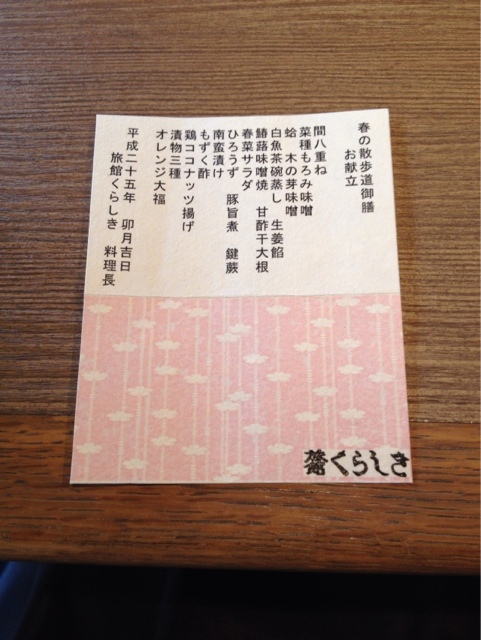 春の散歩道御膳
お献立
間八重ね
菜種もろみ味噌
蛤 木の芽味噌
白魚茶碗蒸し 生姜餡
鰆蕗味噌焼 甘酢干大根
春菜サラダ
ひろうず 豚旨煮 鍵蕨
南蛮漬け
もずく酢
鶏ココナッツ揚げ
漬物三種
オレンジ大福
平成二十五年 卯月吉日
旅館くらしき 料理長
旅館くらしき